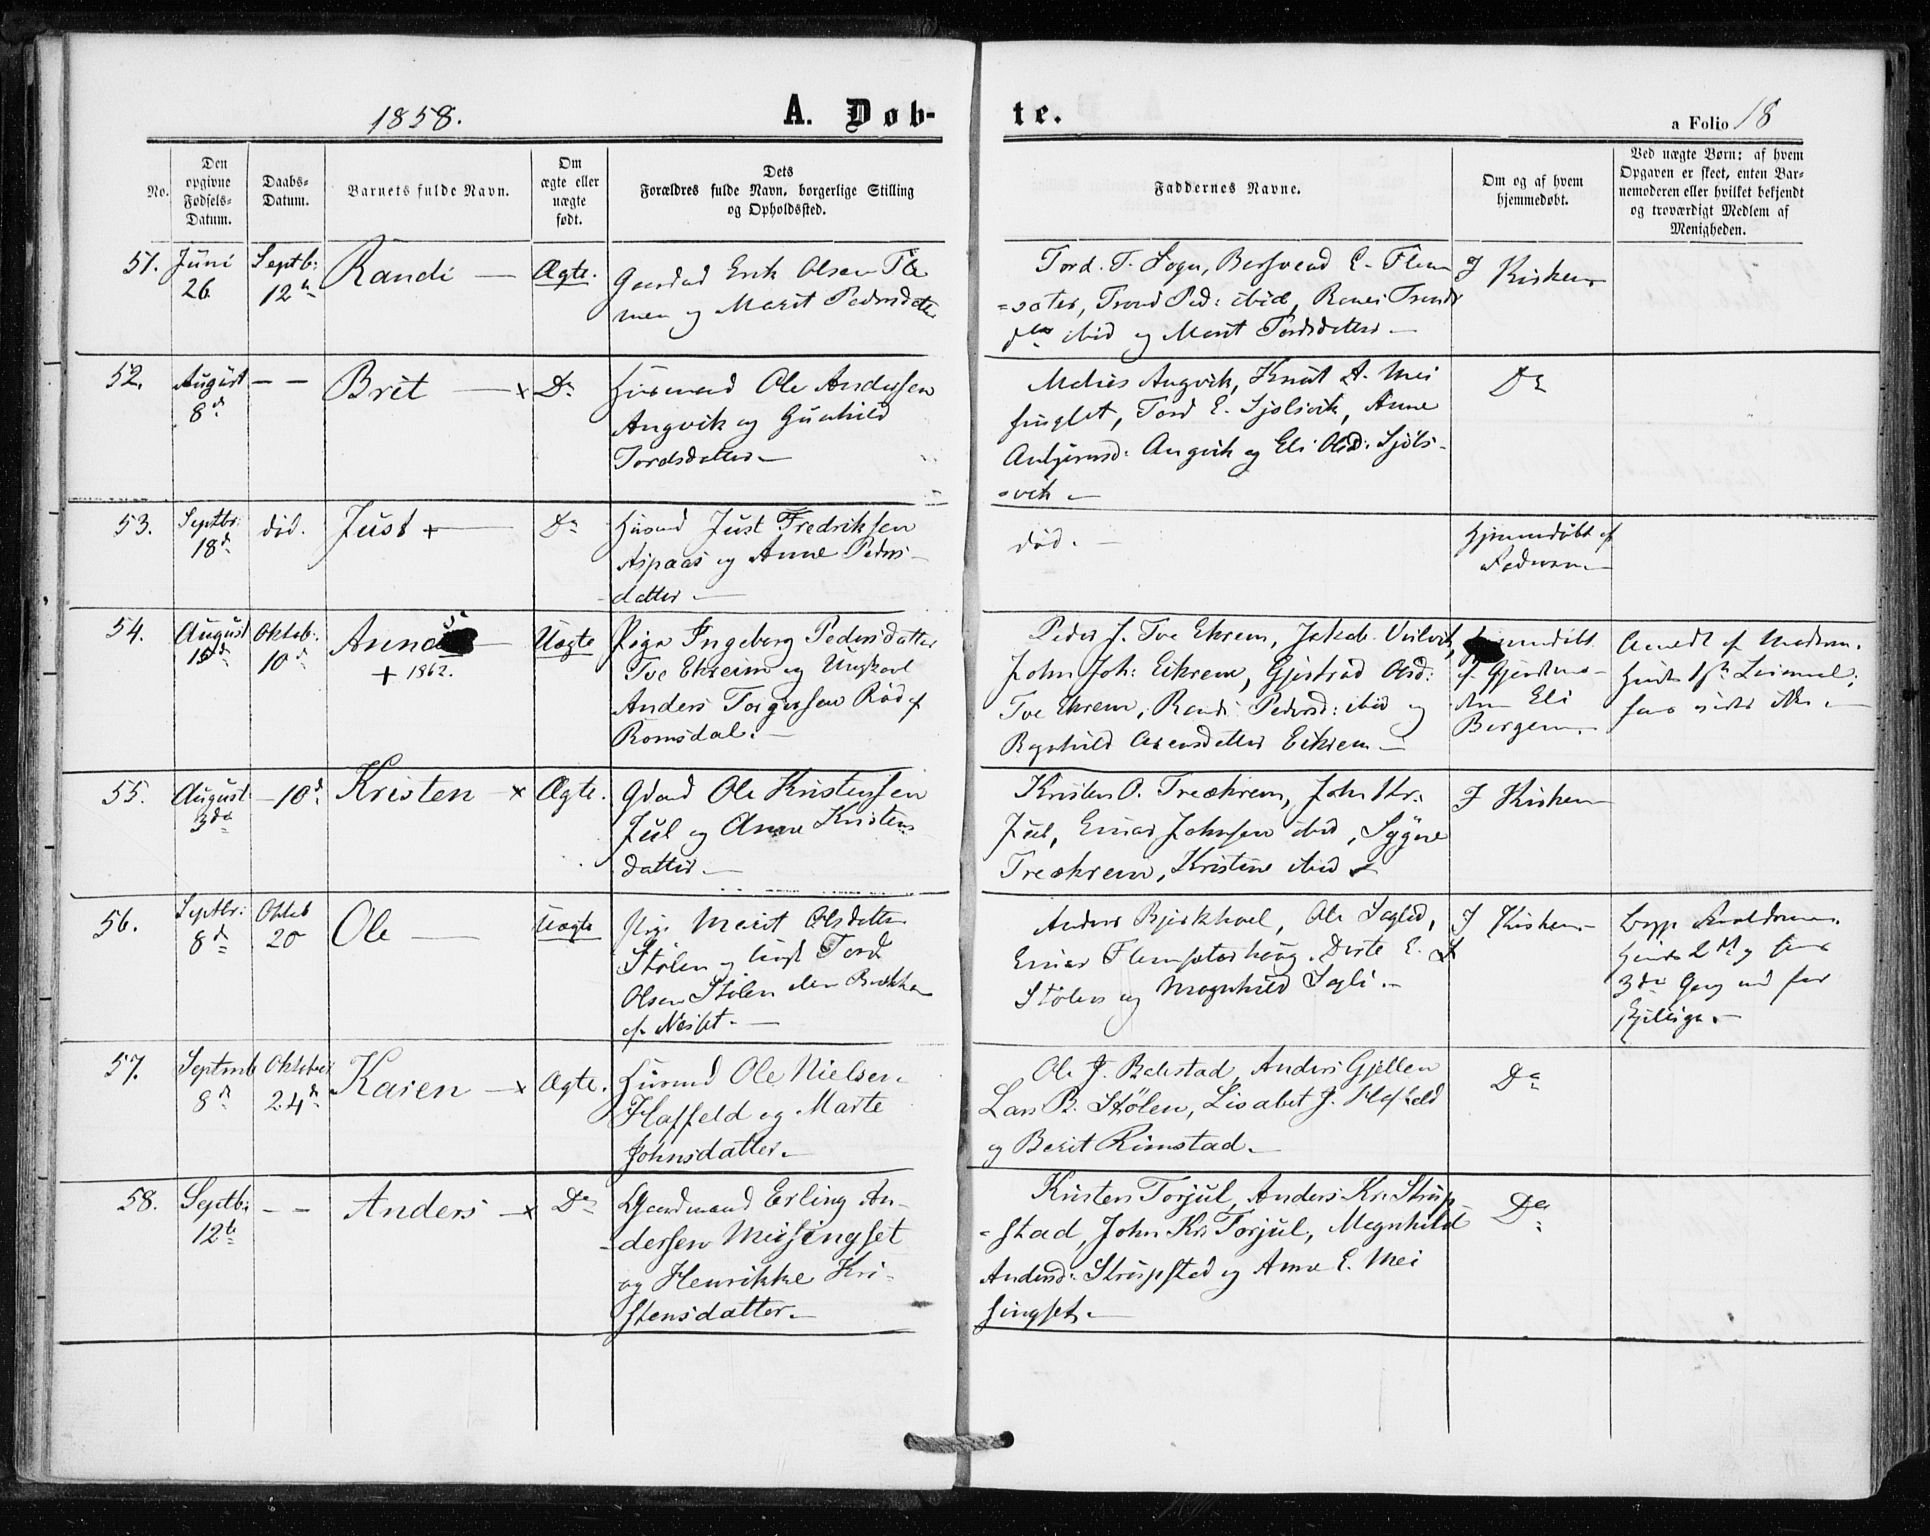 1858.
A. Døb-
te.
a Folio 18
No.
Den opgivne Fødsels-Datum.
Daabs-Datum.
Barnets fulde Navn.
Om ægte eller uægte født.
Dets Forældres fulde Navn, borgerlige Stilling og Opholdssted.
Faddernes Navne.
Om og af hvem hjemmedøbt.
Ved uægte Børn: af hvem Opgaven er skeet, enten Barnemoderen eller hvilket bekjendt og troværdigt Medlem af Menigheden.
51. Juni 26 Septb: 12te Randi — Ægte.
Erik Olsen Fle
men og Marit Pedersdatter
Tord. T. Sogn, Bersvend E. Flem
=sæter, Trond Ped: ibid,
ibid og Marit Tordsdatter —
I Kirken
52. August 8d — — Brit — x Do
Husmand Ole Andersen
Angvik og Gunhild
Tordsdatter —
Angvik, Knut A. Mei
singset, Tord E. Sjølsvik, Anne
Angvik og Eli Olsd: Sjøls-
vik —
Do
53. Septbr: 18d død. Just + — Do
Husmd Just Fredriksen
Aspaas og Anne Peders-
datter —
død. —
Hjemmedøbt af
Faderen —
54. August 15d Oktob: 10d Anne + 1862. Uægte
Pige Ingeborg Pedersdatter
Tve Ekreim og Ungkarl
Anders Torgersen Rød af
Romsdal. —
Peder J. Tve Ekrem, Jakob
John Joh: Eikrem, Gjertrud Olsd:
Tve Ekrem, Randi Pedersd: ibid og
Ragnhild Eikrem —
af Gjordemo-
Eli
Bergem. —
af Moderen.
55. August 3die — 10d. Kristen — x Ægte.
Gdmd Ole Kristensen
Jul og Anne Kristens
datter —
Kristen O. Treekrem, John Kr:
Jul, Einar Johnsen ibid, Sygne
Treekrem, Kristine ibid
I Kirken
56. Septbr: 8d Oktob 20 Ole — Uægte
Pige Marit Olsdatter
Stølen og Ungk Tord
Olsen Stølen
af Nesset. —
Anders Bjerkhoel, Ole Sagli,
Einar Flemsæterhaug, Dorte E.
Stølen og Magnhild Sagli. —
I Kirken —
57. Septemb 8d Oktober 24d Karen — x Ægte.
Husmd Ole Nielsen
Haffeld og Marte
Johnsdatter. —
Ole J. Anders Gjellen
Lars B. Stølen, Lisabet J. Haffeld
og Berit Rimstad. —
Do
58. Septb: 12te — — Anders — x Do
Gaardmand Erling An-
dersen Meisingset
og Henrikke Kri-
stensdatter. —
Kristen Torjul, Anders Kr. Strup
=stad, John Kr. Torjul, Magnhild
Andersd: Strupstad og Anne E. Mei
singset. —
Do